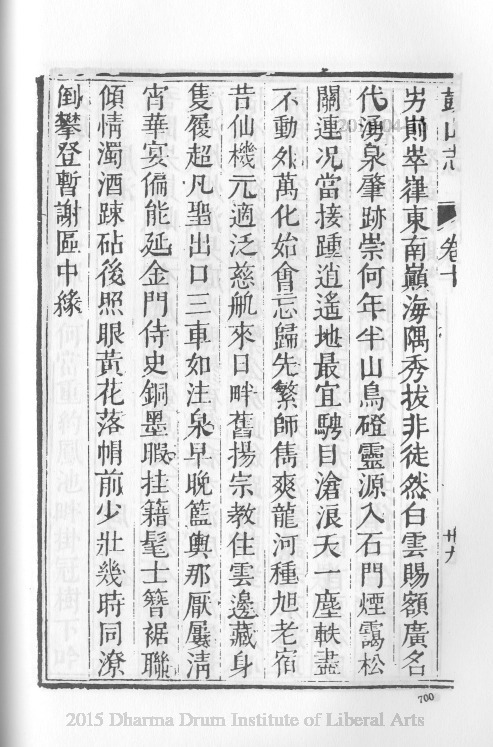 鼓山志
卷十
廿九
屴崱崒嵂東南巔海隅秀拔非徒然白雲賜額廣名
代湧泉肇跡崇何年半山鳥磴靈源入石門煙靄松
關連况當接踵逍遙地最宜騁目滄浪天一塵軼盡
不動外萬化始會忘歸先繁師雋爽龍河種旭老宿
昔仙機元適泛慈航來日畔舊揚宗教住雲邊藏身
隻履超凡聖出口三車如注泉早晚籃輿那厭屢淸
宵華宴偏能延金門侍史銅墨暇挂籍髦士簪裾聯
傾情濁酒踈砧後照眼黃花落帽前少壯幾時同潦
倒攀登暫謝區中緣
700
2015 Dharma Drum Institute of Liberal Arts